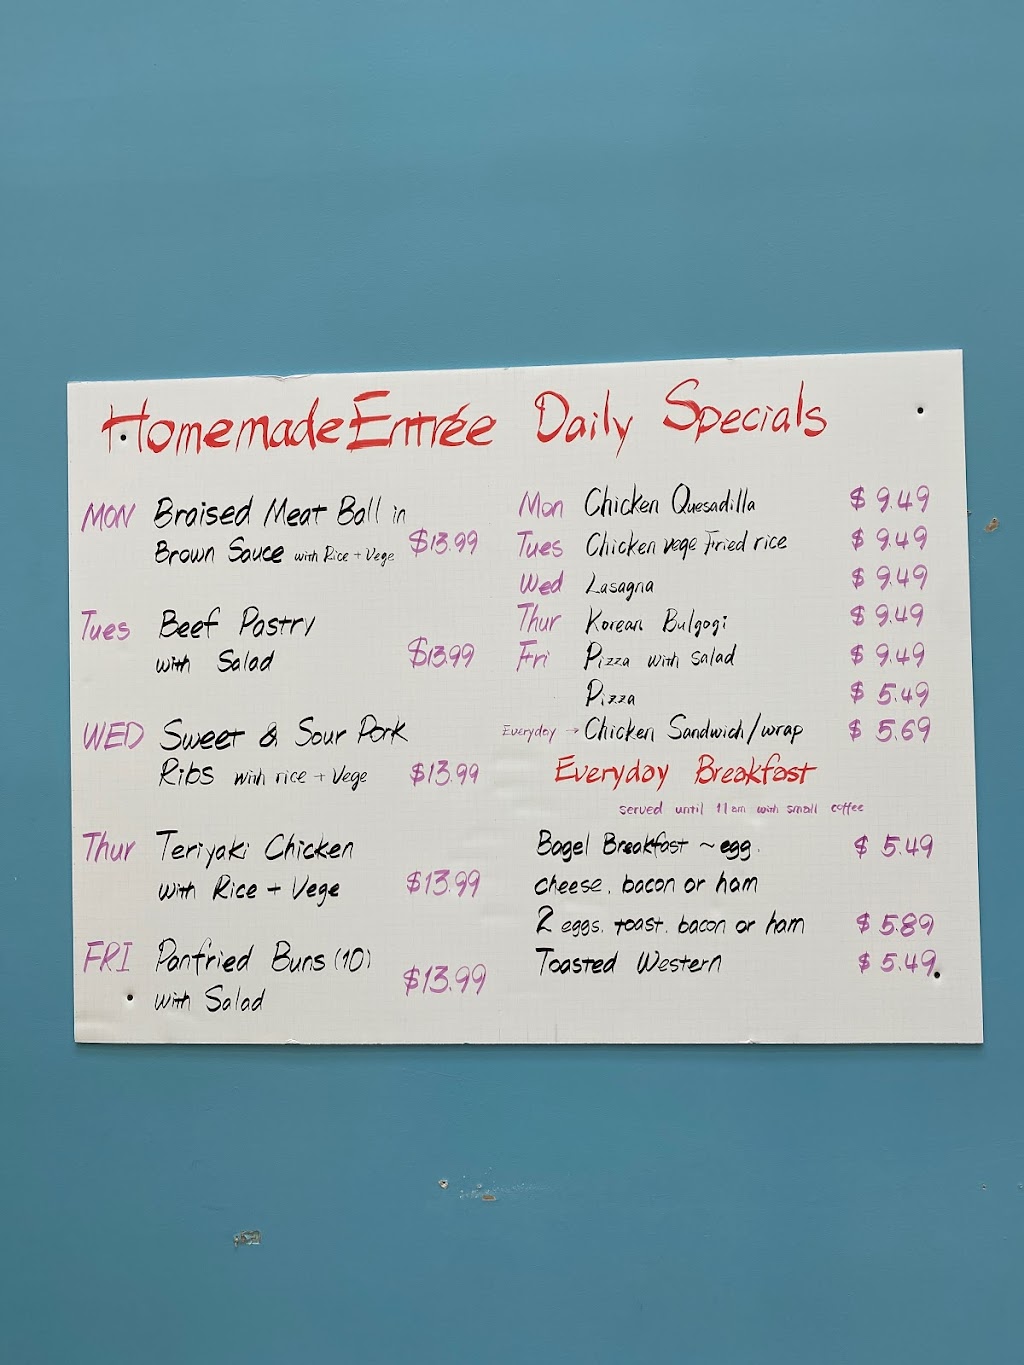 Homemade Entrée Daily Specials
MON Braised Meat Ball in
Brown Sauce with Rice + Vege $13.99
Tues Beef Pastry
with Salad $13.99
WED Sweet & Sour Pork
Ribs with rice + Vege $13.99
Thur Teriyaki Chicken
with Rice + Vege $13.99
FRI Panfried Buns (10)
with Salad $13.99
Mon Chicken Quesadilla $ 9.49
Tues Chicken vege Fried rice $ 9.49
Wed Lasagna $ 9.49
Thur Korean Bulgogi $ 9.49
Fri Pizza with salad $ 9.49
Pizza $ 5.49
Everyday → Chicken Sandwich/wrap $ 5.69
Everyday Breakfast
served until 11am with small coffee
Bagel Breakfast ~ egg. $ 5.49
cheese. bacon or ham
2 eggs. toast. bacon or ham $ 5.89
Toasted Western $ 5.49